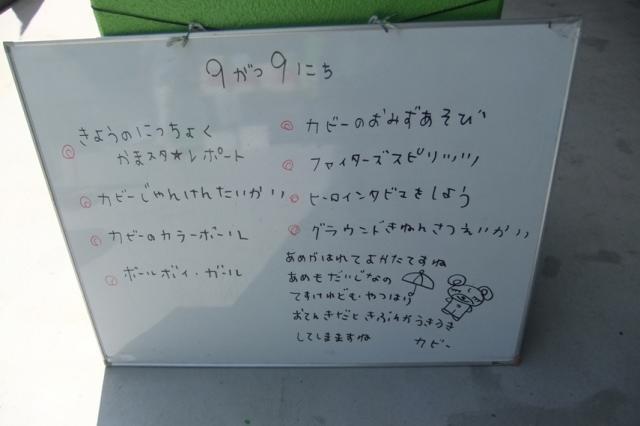 9がつ9にち
きょうのにっちょく
かまスタ★レポート
カビーじゃんけんたいかい
カビーのカラーボール
ボールボーイ・ガール
カビーのおみずあそび
ファイターズスピリッツ
ヒーロインタビュをしよう
グラウンドきねんさつえいかい
あめがはれてよかたですね
あめもだいじなの
ですけれども・やっはり
おてんきだときぶんがうきうき
してしまますね
カビー